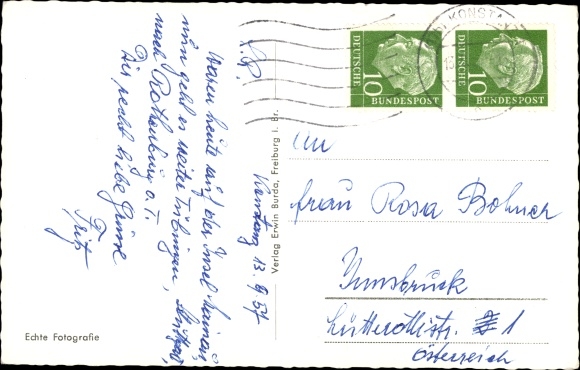 Konstanz 13.9.57
L.R.
Waren heute auf der Insel Mainau,
nun geht es weiter Tübingen, Stuttgart,
nach Rothenburg o.T.
Dir recht liebe Grüsse
Fritz
Echte Fotografie
Verlag Erwin Burda, Freiburg i. Br.
KONSTANZ
DEUTSCHE
10
BUNDESPOST
DEUTSCHE
10
BUNDESPOST
An
Frau Rosa Bohner
Innsbruck
Lütterothstr. 1
Österreich